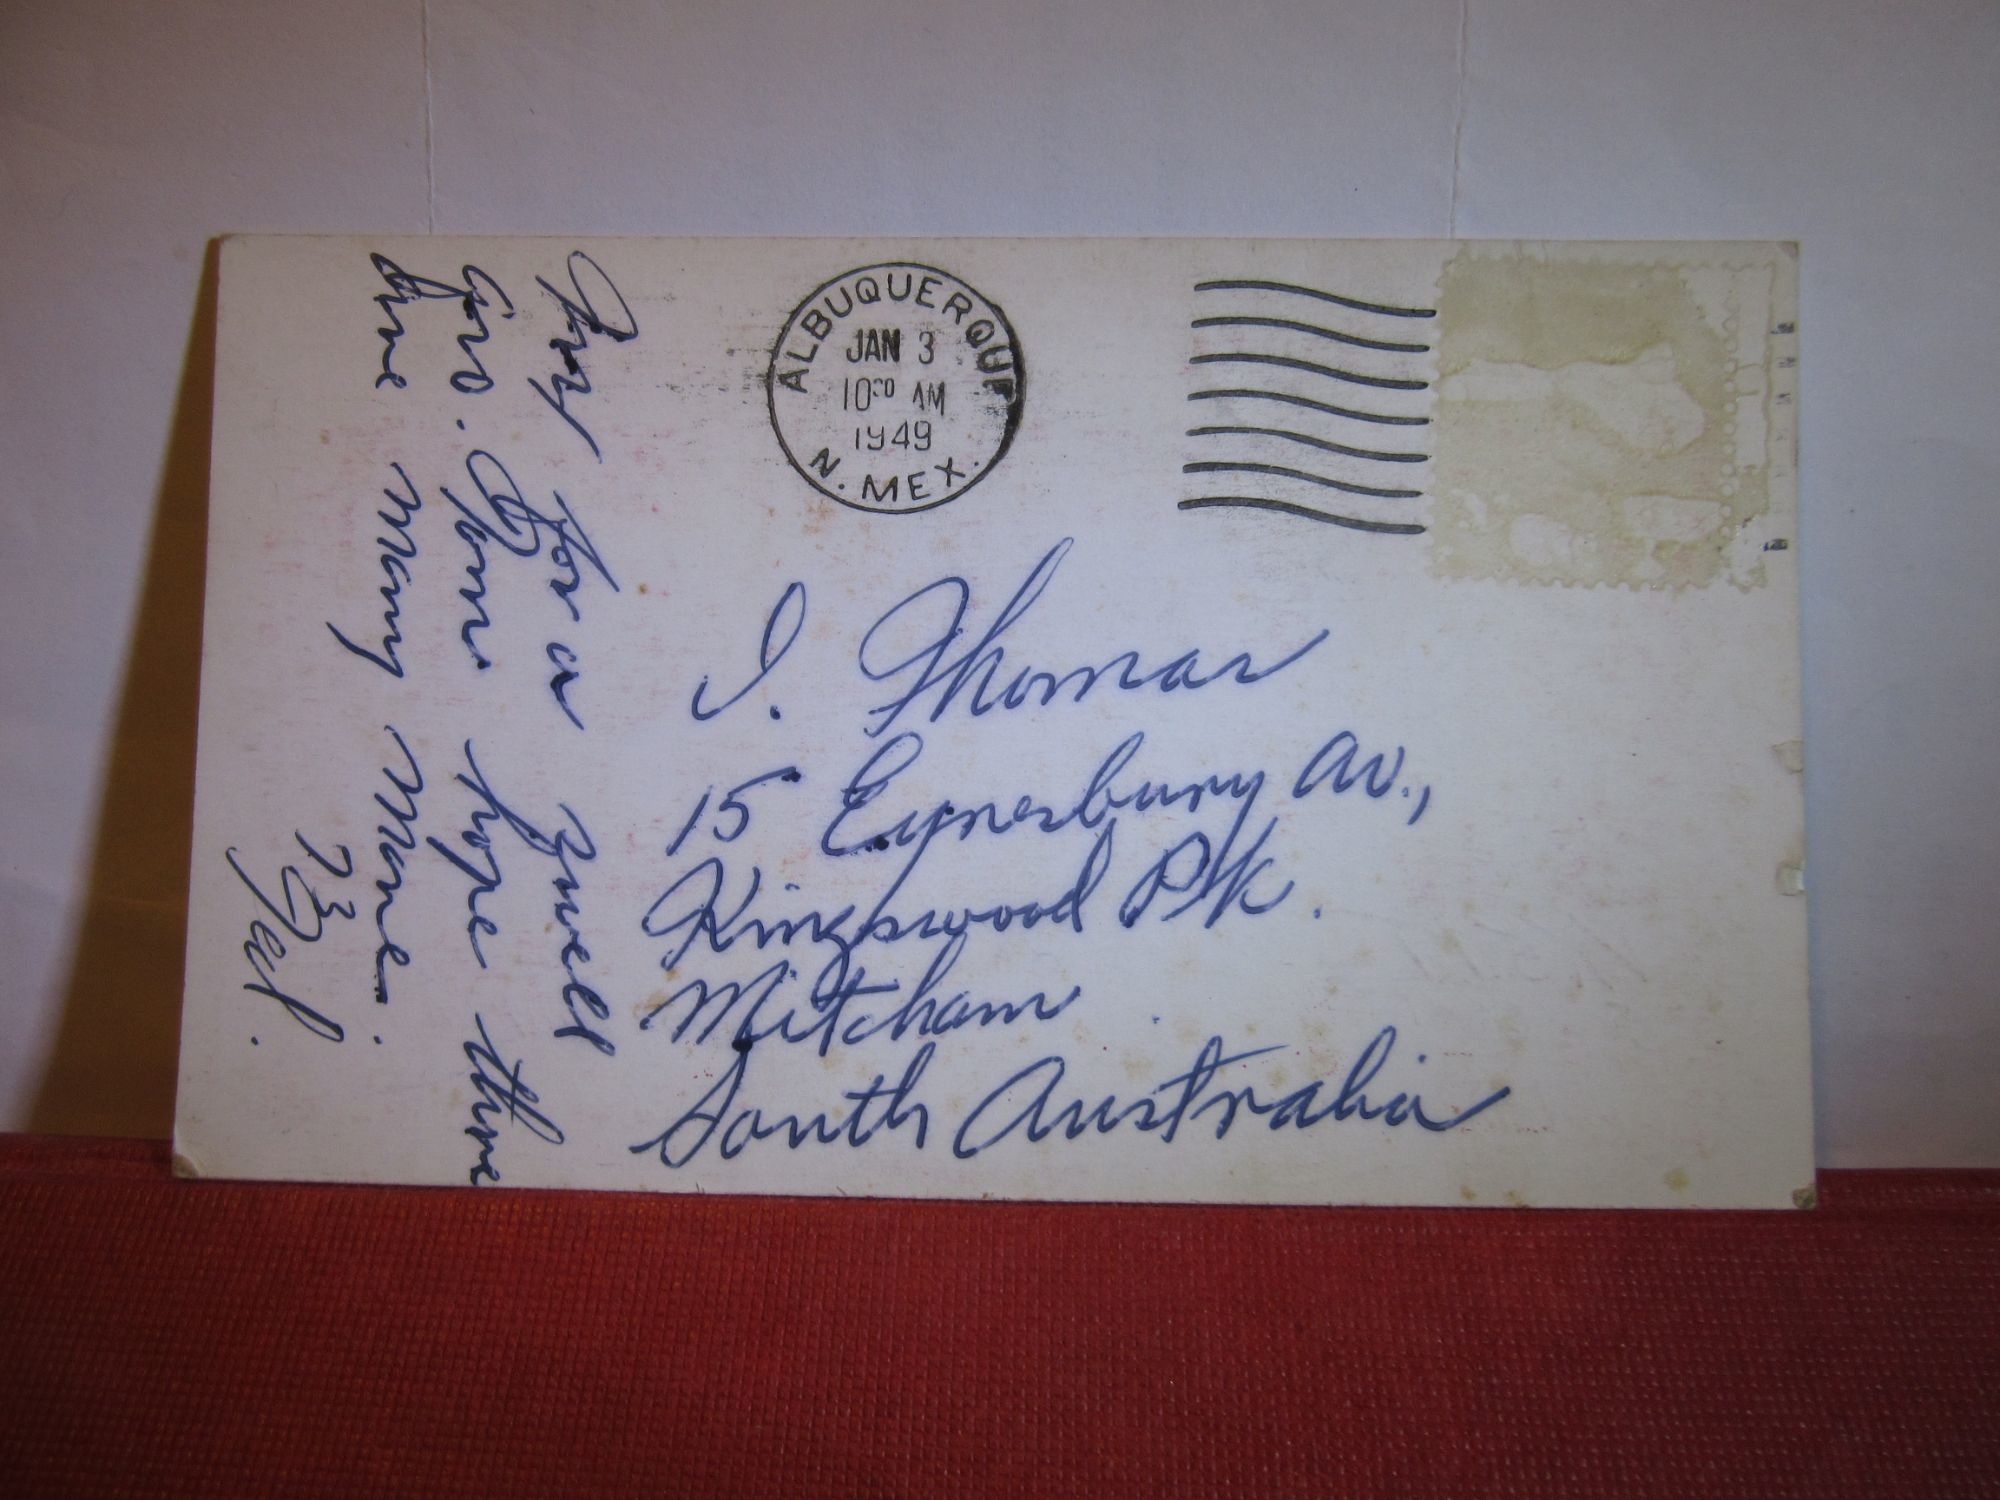 ALBUQUERQUE
JAN 3
10 30 AM
1949
N. MEX.
Tnx for a swell
QSO. hope there
are many more.
73
Ted.
I. Thomas
15 Eynesbury Av.,
Kingswood Pk.
Mitcham
South Australia